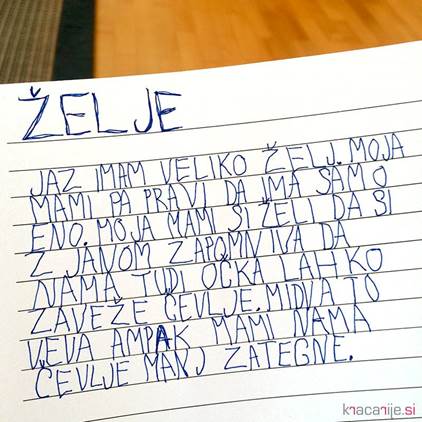 ŽELJE
JAZ IMAM VELIKO ŽELJ. MOJA
MAMI PA PRAVI DA IMA SAMO
ENO. MOJA MAMI SI ŽELI DA SI
Z JANOM ZAPOMNIVA DA
NAMA TUDI OČKA LAHKO
ZAVEŽE ČEVLJE. MIDVA TO
VEVA AMPAK MAMI NAMA
ČEVLJE MANJ ZATEGNE.
kracarije.si